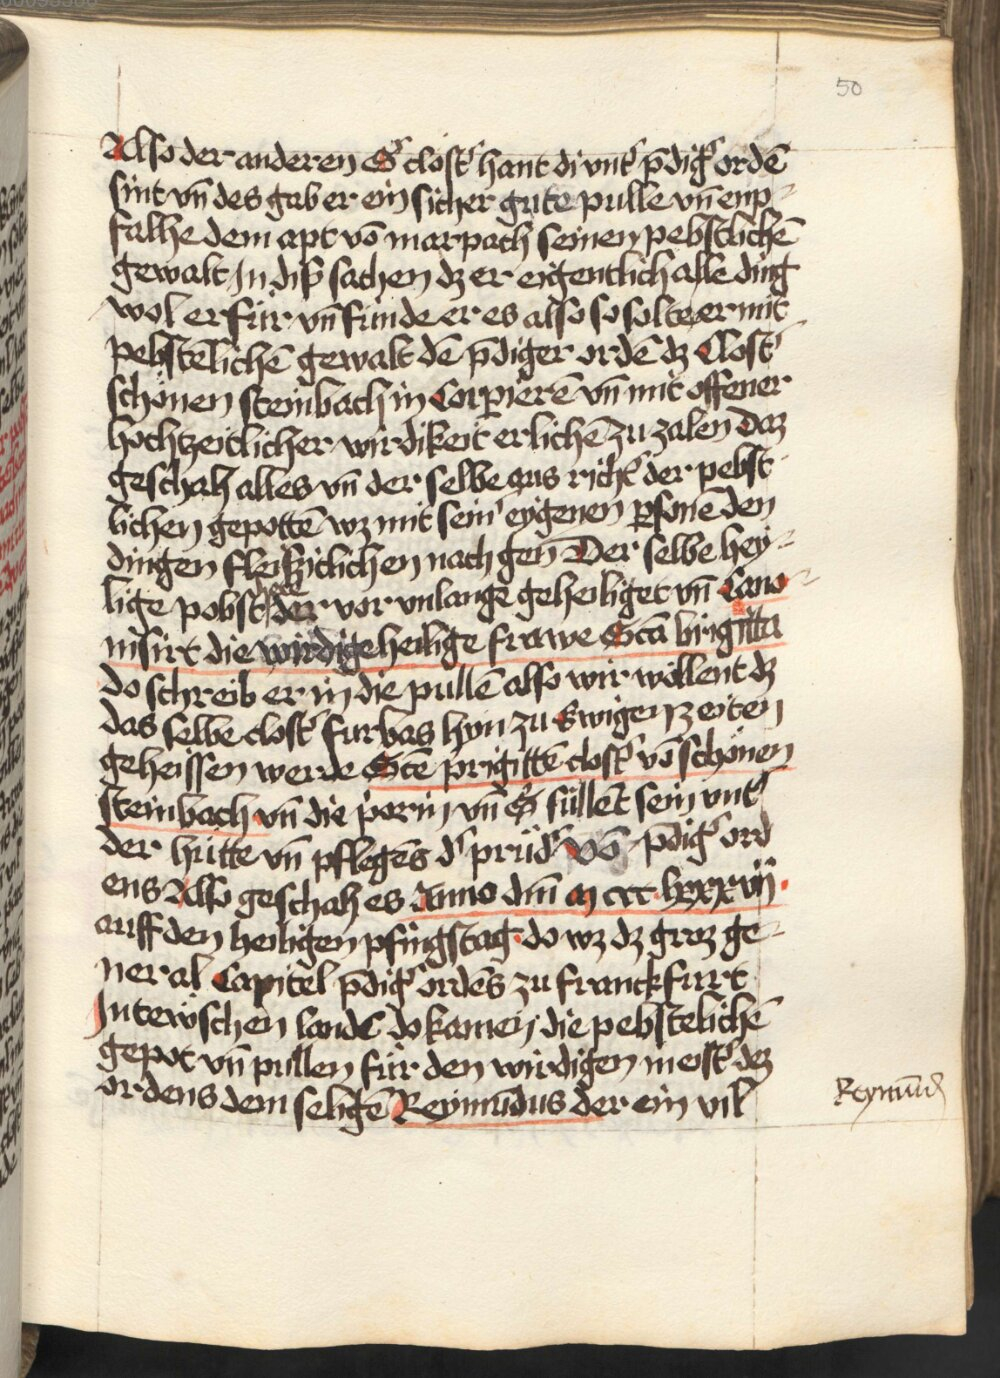 50
Also der anderen Sͬ clostͬ hant di vntͬ p̄digͬ ordē
sint vn̄ des gab er ein sicher gute pulle vn̄ enp-
falhe dem apt vō marpach seinen pebstlichē
gewalt In disͬ sachen dz er eigentlich alle ding
wol erfür vn̄ funde er es also so solte er mit
pebstelichē gewalt dē p̄diger ordē dz Clostͬ
schönen steinbach in Corpierē vn̄ mit offener
hochtzeitlicher wirdikeit erlichē zu zalen Daz
geschah alles vn̄ der selbe aus richtͬ der pebst
lichen gepottē wz mit seinͬ eygenen ꝑsonē den
dingen fleissiclichen nach gen̄ Der selbe hey-
lige pobst der vor vnlange geheiliget vn̄ Cano-
nisirt die wirdige heilige frawe Sctā brigitta
do schreib er in die pullē also wir wöllent dz
das selbe clostͬ furbas hyn zu Ewigen zeiten
geheissen werde Sctē prigittē clostͬ vō schönen
steinbach vn̄ die porin vn̄ Sͬ süllēt sein vntͬ
der hütte vn̄ pflegēs dͬ prüdͬ vō p̄digͬ ord
ens Also geschah es Anno dm̄ m ccc lxxxvij
auff den heiligen pfingstag do wz dz groz ge-
neral Capitel p̄digͬ ordēs zu franckfurt
Intewschen lande do kamen die pebstelichē
gepot vn̄ pullen für den wirdigen meistͬ dez
ordens dem seligē Reymūdus der ein vil
Reymūdͬ